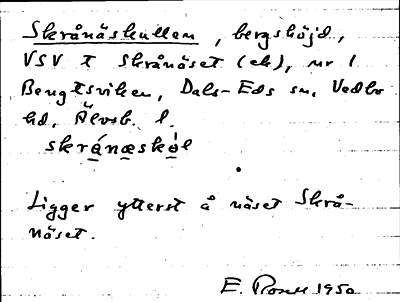 Skrånäskullen, bergshöjd,
VSV t Skrånäset (ek), nr 1
Bengtsviken, Dals-Eds sn, Vedbo
hd, Älvsb. l.
skránæskòl
Ligger ytterst å näset Skrå-
näset.
E. 1950